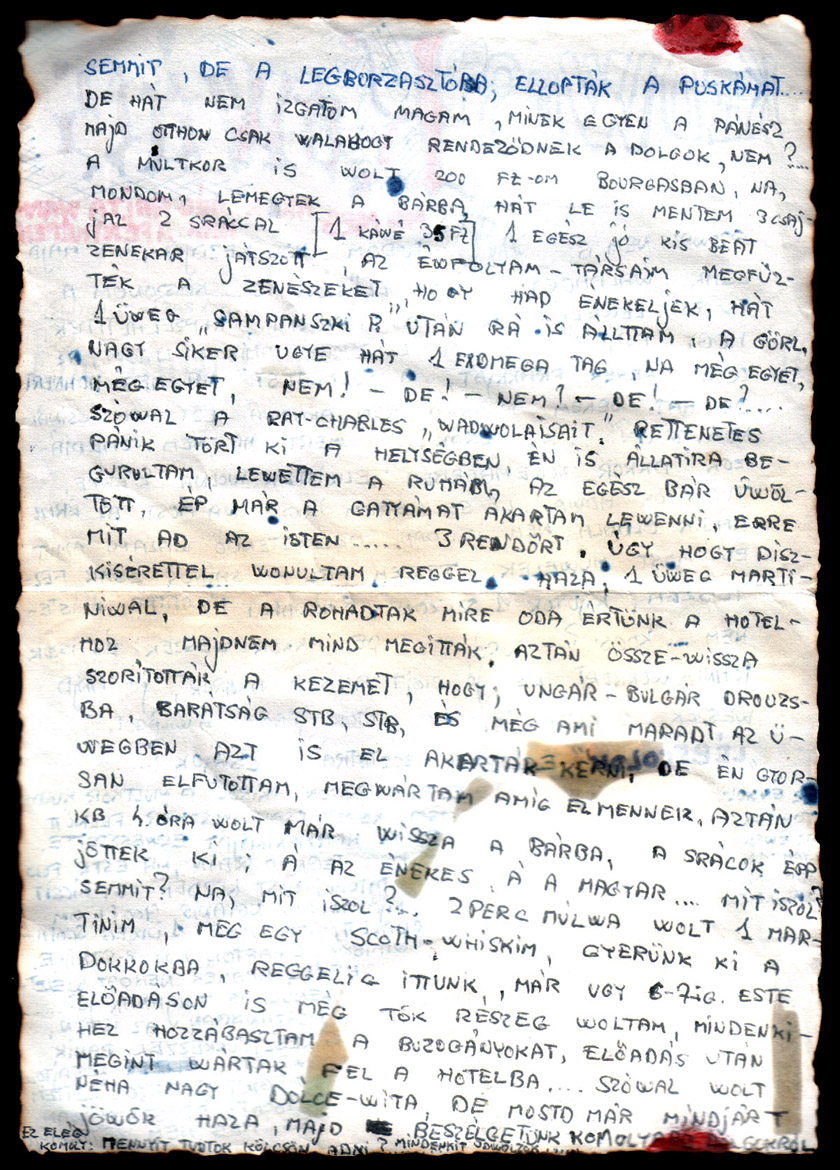 SEMMIT, DE A LEGBORZASZTÓBB, ELLOPTÁK A PUSKÁMAT....
DE HÁT NEM IZGATOM MAGAM, MINEK EGYEN A PÁNÉSZ
MAJD OTTHON CSAK WALAHOGY RENDEZŐDNEK A DOLGOK, NEM?...
A MÚLTKOR IS WOLT 200 FZ-OM BOURGASBAN, NA,
MONDOM, LEMEGYEK A BÁRBA, HÁT LE IS MENTEM 3 CSAJ-
JAL 2 SRÁCCAL [1 KÁWÉ 35 FZ] 1 EGÉSZ JÓ KIS BEAT
ZENEKAR JÁTSZOTT, AZ ÉWFOLYAM-TÁRSAIM MEGFŰZ-
TÉK A ZENÉSZEKET, HOGY HAD ÉNEKELJEK, HÁT
1 ÜWEG „SAMPANSZKI" UTÁN RÁ IS ÁLLTAM, A GÖRL,
NAGY SIKER UGYE HÁT 1 EXOMEGA TAG, NA MÉG EGYET,
MÉG EGYET, NEM! - DE! - NEM? - DE! - DE?....
SZÓWAL A RAY-CHARLES „WADWOLAISAIT." RETTENETES
PÁNIK TÖRT KI A HELYSÉGBEN, ÉN IS ÁLLATIRA BE-
GURULTAM, LEWETTEM A RUHÁM, AZ EGÉSZ BÁR ÜWÖL-
TÖTT, ÉP MÁR A GATYÁMAT AKARTAM LEWENNI, ERRE
MIT AD AZ ISTEN ..... 3 RENDŐRT. ÚGY HOGY DISZ-
KISERETTEL WONULTAM REGGEL HAZA, 1 ÜWEG MARTI-
NIWAL, DE A ROHADTAK MIRE ODA ÉRTÜNK A HOTEL-
HOZ MAJDNEM MIND MEGITTÁK, AZTÁN ÖSSZE-WISSZA
SZORÍTOTTÁK A KEZEMET, HOGY; UNGÁR-BULGÁR DROUZS-
BA, BARATSÁG STB, STB, ÉS MÉG AMI MARADT AZ Ü-
WEGBEN AZT IS EL AKARTÁK KÉRNI, DE ÉN GYOR-
SAN ELFUTOTTAM, MEGWÁRTAM AMIG ELMENNEK, AZTÁN
KB 4. ÓRA WOLT MÁR WISSZA A BÁRBA, A SRÁCOK ÉPP
JÖTTEK KI, Á AZ ÉNEKES, Á A MAGYAR.... MIT ISZOL?
SEMMIT? NA, MIT ISZOL?... 2 PERC MÚLWA WOLT 1 MAR-
TINIM, MÉG EGY SCOTH-WHISKIM, GYERÜNK KI A
DOKKOKBA, REGGELIG ITTUNK, MÁR UGY 6-7IG. ESTE
ELŐADÁSON IS MÉG TÖK RÉSZEG WOLTAM, MINDENKI-
HEZ HOZZÁBASZTAM A BUZOGÁNYOKAT, ELŐADÁS UTÁN
MEGINT WÁRTAK FEL A HOTELBA.... SZÓWAL WOLT
NÉHA NAGY DOLCE-WITA, DE MOSTD MÁR MINDJÁRT
JÖWÖK HAZA, MAJD BESZÉLGETÜNK KOMOLYABB DOLGOKRÓL
EZ ELÉG
KOMOLY: MENNYIT TUDTOK KÖLCSÖN ADNI? MINDENKIT